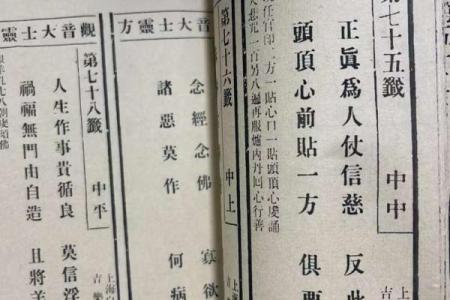 第七十五籤 中中
正眞為人仗信慈 反此
頭頂心前貼一方 俱要
官印一方一貼心口一貼頭頂心虔誦
大悲咒一百另八遍再服爐內丹回心行善
上海
吉
第七十六籤 中上
大士靈方
念經念佛 寡欲
諸惡莫作 何病
觀音大士靈
第七十八籤 中平
人生作事貴循良 莫信淫
禍福無門由自造 且將
上海
吉